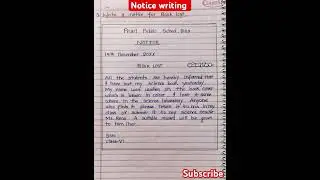 Notice writing
Write a notice for Book lost.
Pearl Public School,
NOTICE
14th December 20XX
BOOK LOST
All the students are hereby informed that
I have lost my science book yesterday.
My name was written on the book cover
which is brown in color. I lost it some
where in the science laboratory. Anyone
who finds it, please return it to me in my
class or submit it to my science teacher
Ms. A suitable reward will be given
to him/her.
Class-VI
Subscribe